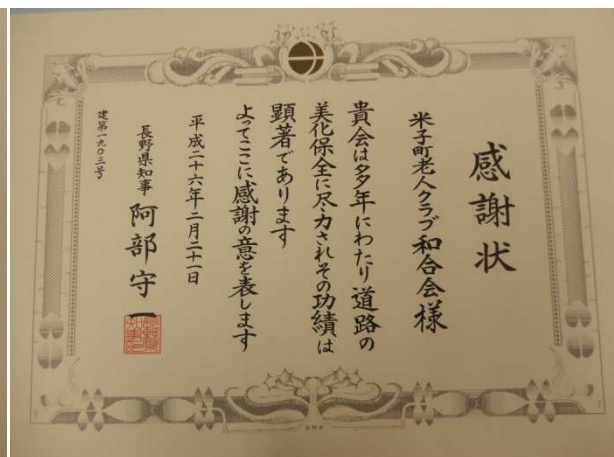 感謝状
米子町老人クラブ和合会様
貴会は多年にわたり道路の
美化保全に尽力されその功績は
顕著であります
よってここに感謝の意を表します
平成二十六年二月二十一日
長野県知事 阿部守一
建第一九〇三号